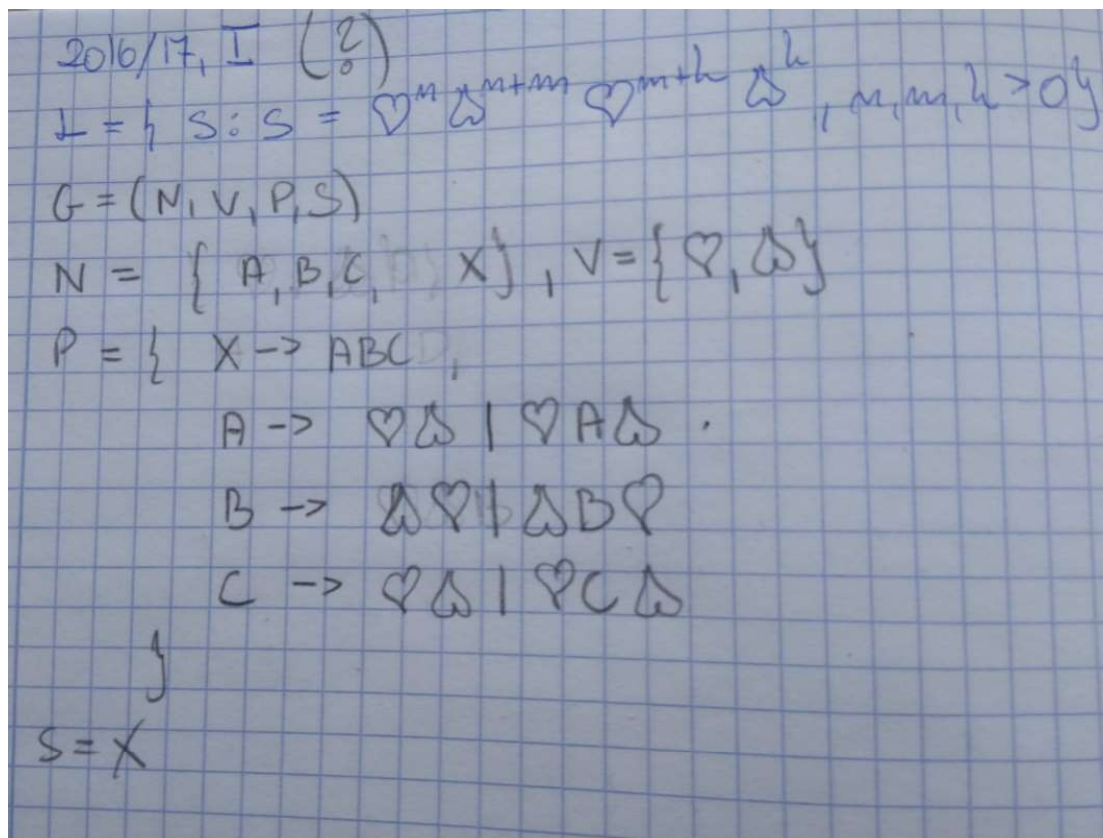 2016/17, I (?)
L = { S : S = ♡^n ♤^{n+m} ♡^{m+k} ♤^k, n, m, k > 0}
G = (N, V, P, S)
N = { A, B, C, X}, V = {♡, ♤}
P = { X -> ABC,
A -> ♡♤ | ♡A♤ .
B -> ♤♡ | ♤B♡
C -> ♡♤ | ♡C♤
}
S = X